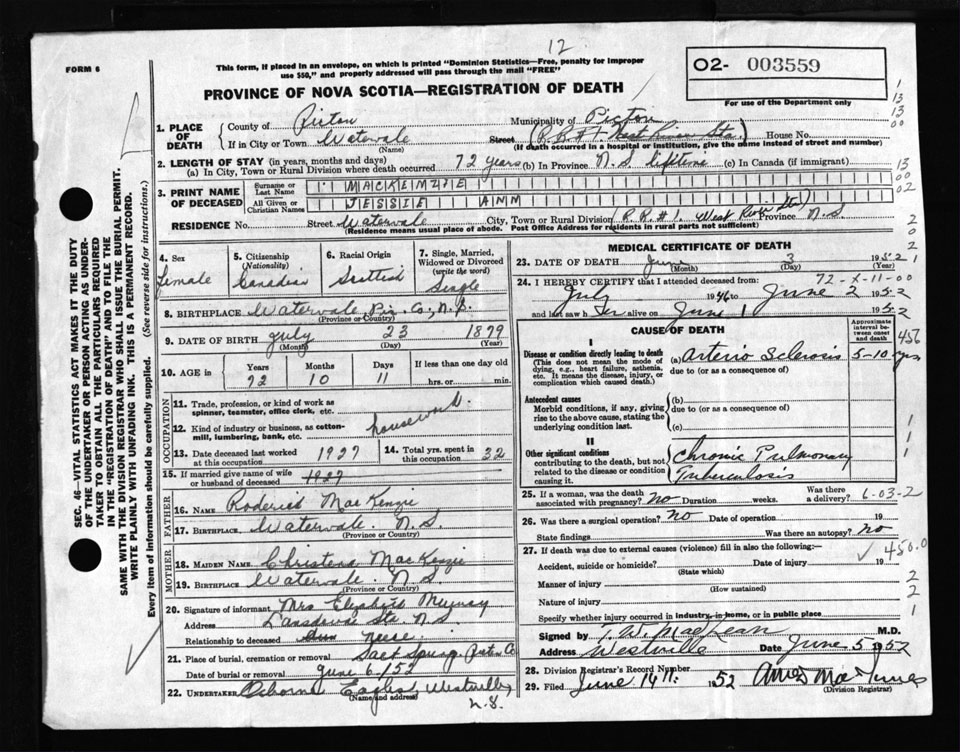 12
FORM 6
This form, if placed in an envelope, on which is printed "Dominion Statistics—Free, penalty for improper
use $50," and properly addressed will pass through the mail "FREE"
PROVINCE OF NOVA SCOTIA—REGISTRATION OF DEATH
O2- 003559
For use of the Department only
1. PLACE OF DEATH
County of Pictou Municipality of Pictou
If in City or Town Watervale (Name) Street R.R.#1 West River Sta. House No.
(If death occurred in a hospital or institution, give the name instead of street and number)
2. LENGTH OF STAY (in years, months and days)
(a) In City, Town or Rural Division where death occurred 72 years (b) In Province N.S. lifetime (c) In Canada (if immigrant)
3. PRINT NAME OF DECEASED
Surname or Last Name MACKENZIE
All Given or Christian Names JESSIE ANN
RESIDENCE No. Street Watervale City, Town or Rural Division R.R.#1. West River Sta. Province N.S.
(Residence means usual place of abode. Post Office Address for residents in rural parts not sufficient)
4. Sex female
5. Citizenship (Nationality) Canadian
6. Racial Origin Scottish
7. Single, Married, Widowed or Divorced (write the word) Single
8. BIRTHPLACE Watervale Pic. Co. N.S.
(Province or Country)
9. DATE OF BIRTH July 23 1879
(Month) (Day) (Year)
10. AGE in Years 72 Months 10 Days 11 If less than one day old hrs. or min.
OCCUPATION
11. Trade, profession, or kind of work as spinner, teamster, office clerk, etc.
12. Kind of industry or business, as cotton-mill, lumbering, bank, etc. housework
13. Date deceased last worked at this occupation 1927
14. Total yrs. spent in this occupation 32
15. If married give name of wife or husband of deceased 1927
FATHER
16. NAME Roderick MacKenzie
17. BIRTHPLACE Watervale. N.S.
(Province or Country)
MOTHER
18. MAIDEN NAME Christena MacKenzie
19. BIRTHPLACE Watervale. N.S.
(Province or Country)
20. Signature of informant Mrs Elizabeth Murray
Address Lansdowne Sta. N.S.
Relationship to deceased neese.
21. Place of burial, cremation or removal Salt Springs Pictou Co
Date of burial or removal June 6/52
22. UNDERTAKER Osborne English Westville
(Name and address)
N.S.
MEDICAL CERTIFICATE OF DEATH
23. DATE OF DEATH June 3 1952
(Month) (Day) (Year)
24. I HEREBY CERTIFY that I attended deceased from 72-X-11-00
July 1946 to June 2 1952
and last saw her alive on June 1 1952
CAUSE OF DEATH
Approximate interval between onset and death
456
I
Disease or condition directly leading to death (a) Arterio Sclerosis 5-10 yrs
(This does not mean the mode of dying, e.g., heart failure, asthenia, etc. It means the disease, injury, or complication which caused death.)
due to (or as a consequence of)
Antecedent causes
Morbid conditions, if any, giving rise to the above cause, stating the underlying condition last.
(b)
due to (or as a consequence of)
(c)
II
Other significant conditions
contributing to the death, but not related to the disease or condition causing it.
Chronic Pulmonary Tuberculosis
25. If a woman, was the death associated with pregnancy? No Duration weeks. Was there a delivery? 6-03-2
26. Was there a surgical operation? No Date of operation 19
State findings Was there an autopsy? No
27. If death was due to external causes (violence) fill in also the following:— 450.0
Accident, suicide or homicide? Date of injury 19
(State which)
Manner of injury
(How sustained)
Nature of injury
Specify whether injury occurred in industry, in home, or in public place
Signed by T. W. MacLean M.D.
Address Westville Date June 5 1952
28. Division Registrar's Record Number
29. Filed June 14th. 1952
(Division Registrar)
SEC. 46—VITAL STATISTICS ACT MAKES IT THE DUTY
OF THE UNDERTAKER OR PERSON ACTING AS UNDER-
TAKER TO OBTAIN ALL THE PARTICULARS REQUIRED
IN THE "REGISTRATION OF DEATH" AND TO FILE THE
SAME WITH THE DIVISION REGISTRAR WHO SHALL ISSUE THE BURIAL PERMIT.
WRITE PLAINLY WITH UNFADING INK. THIS IS A PERMANENT RECORD.
Every item of information should be carefully supplied. (See reverse side for instructions.)